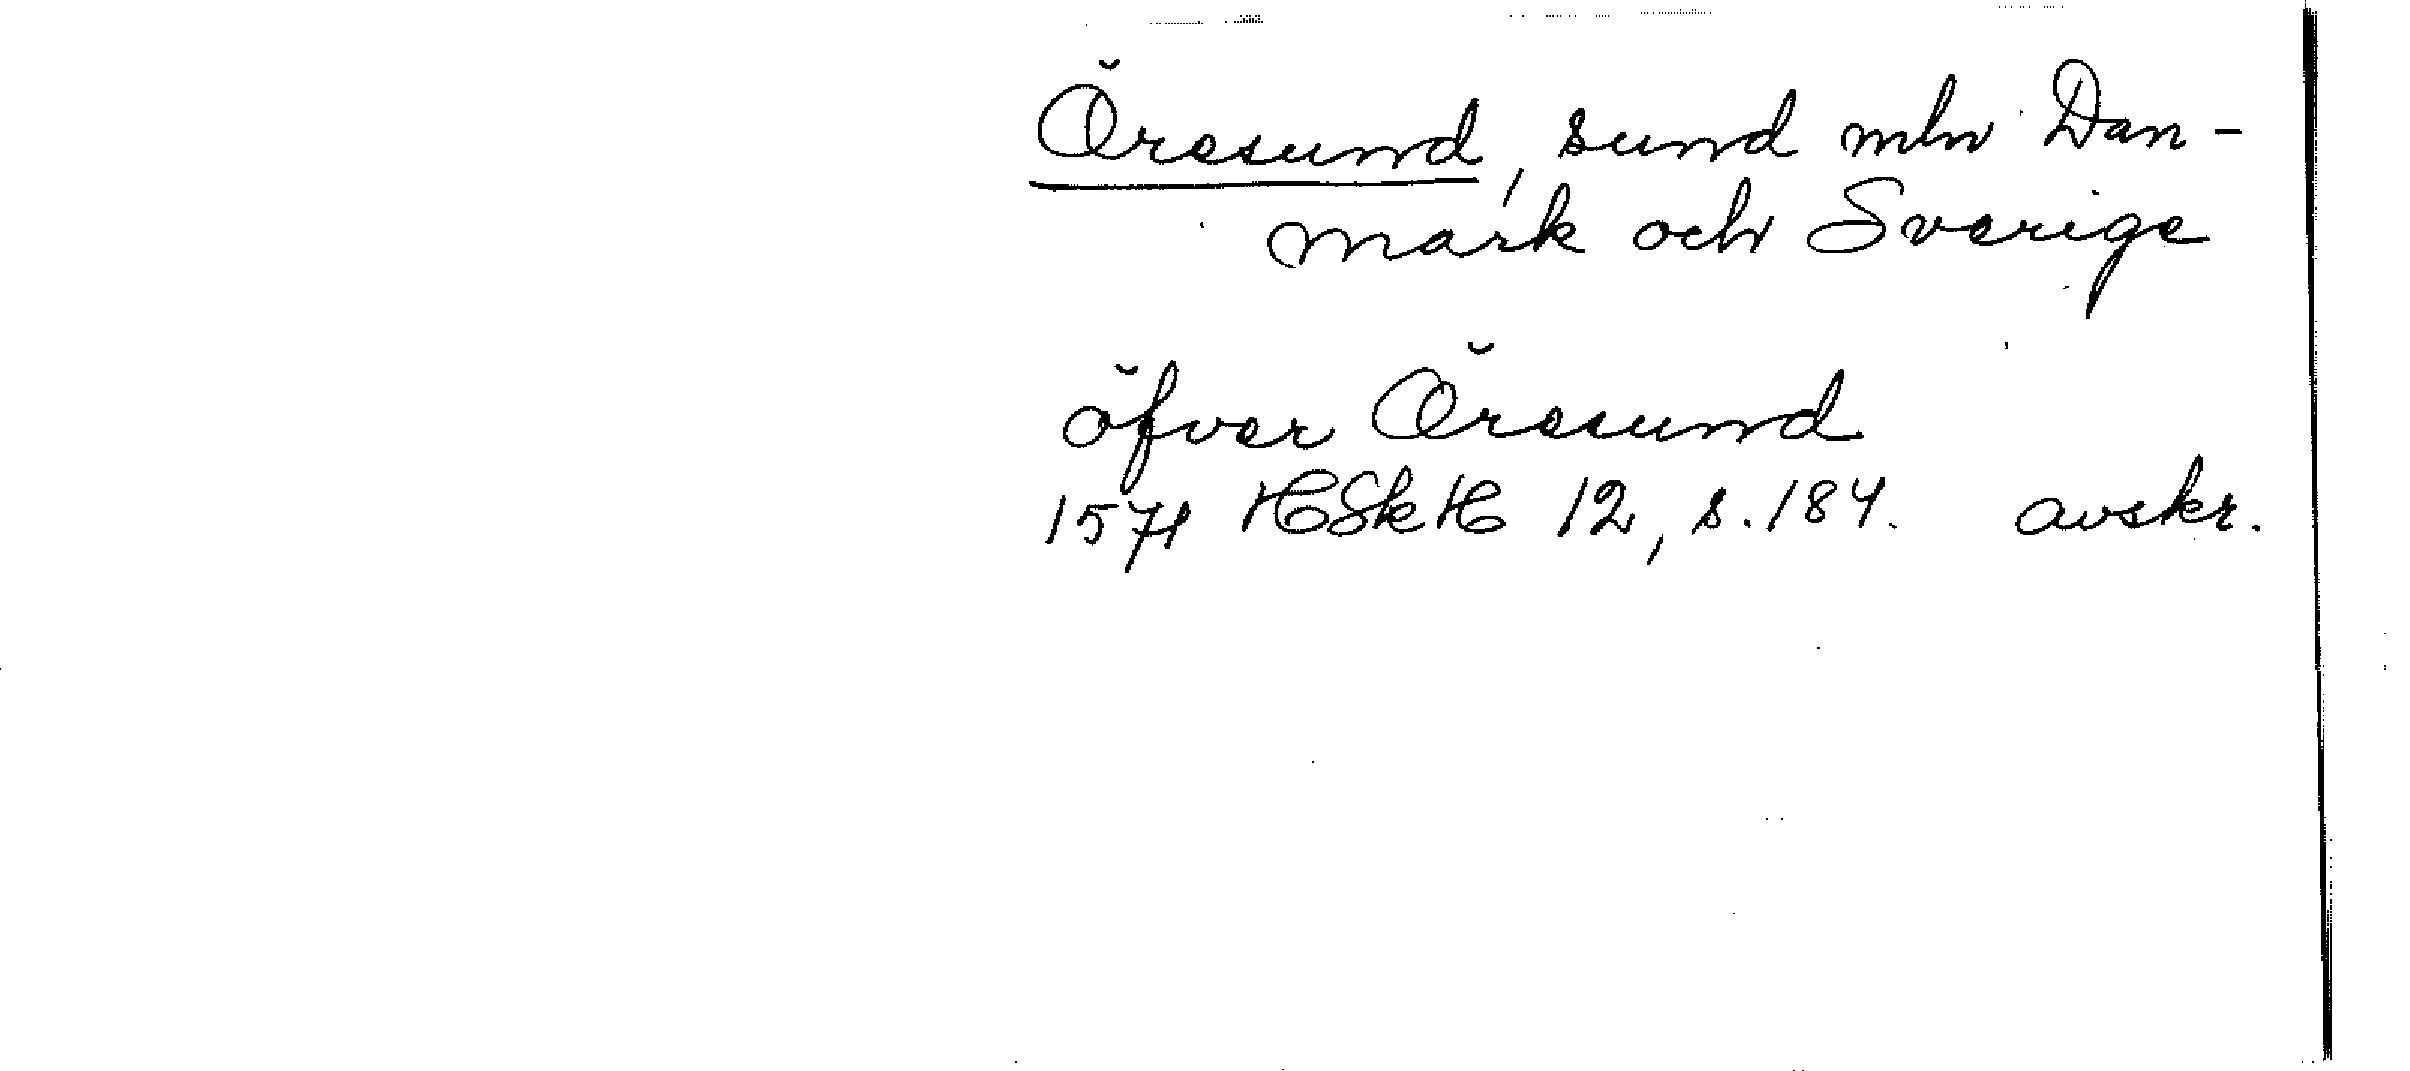 Öresund, sund mln Dan-
mark och Sverige
öfver Öresund
1571 HSkH 12, s. 184. avskr.